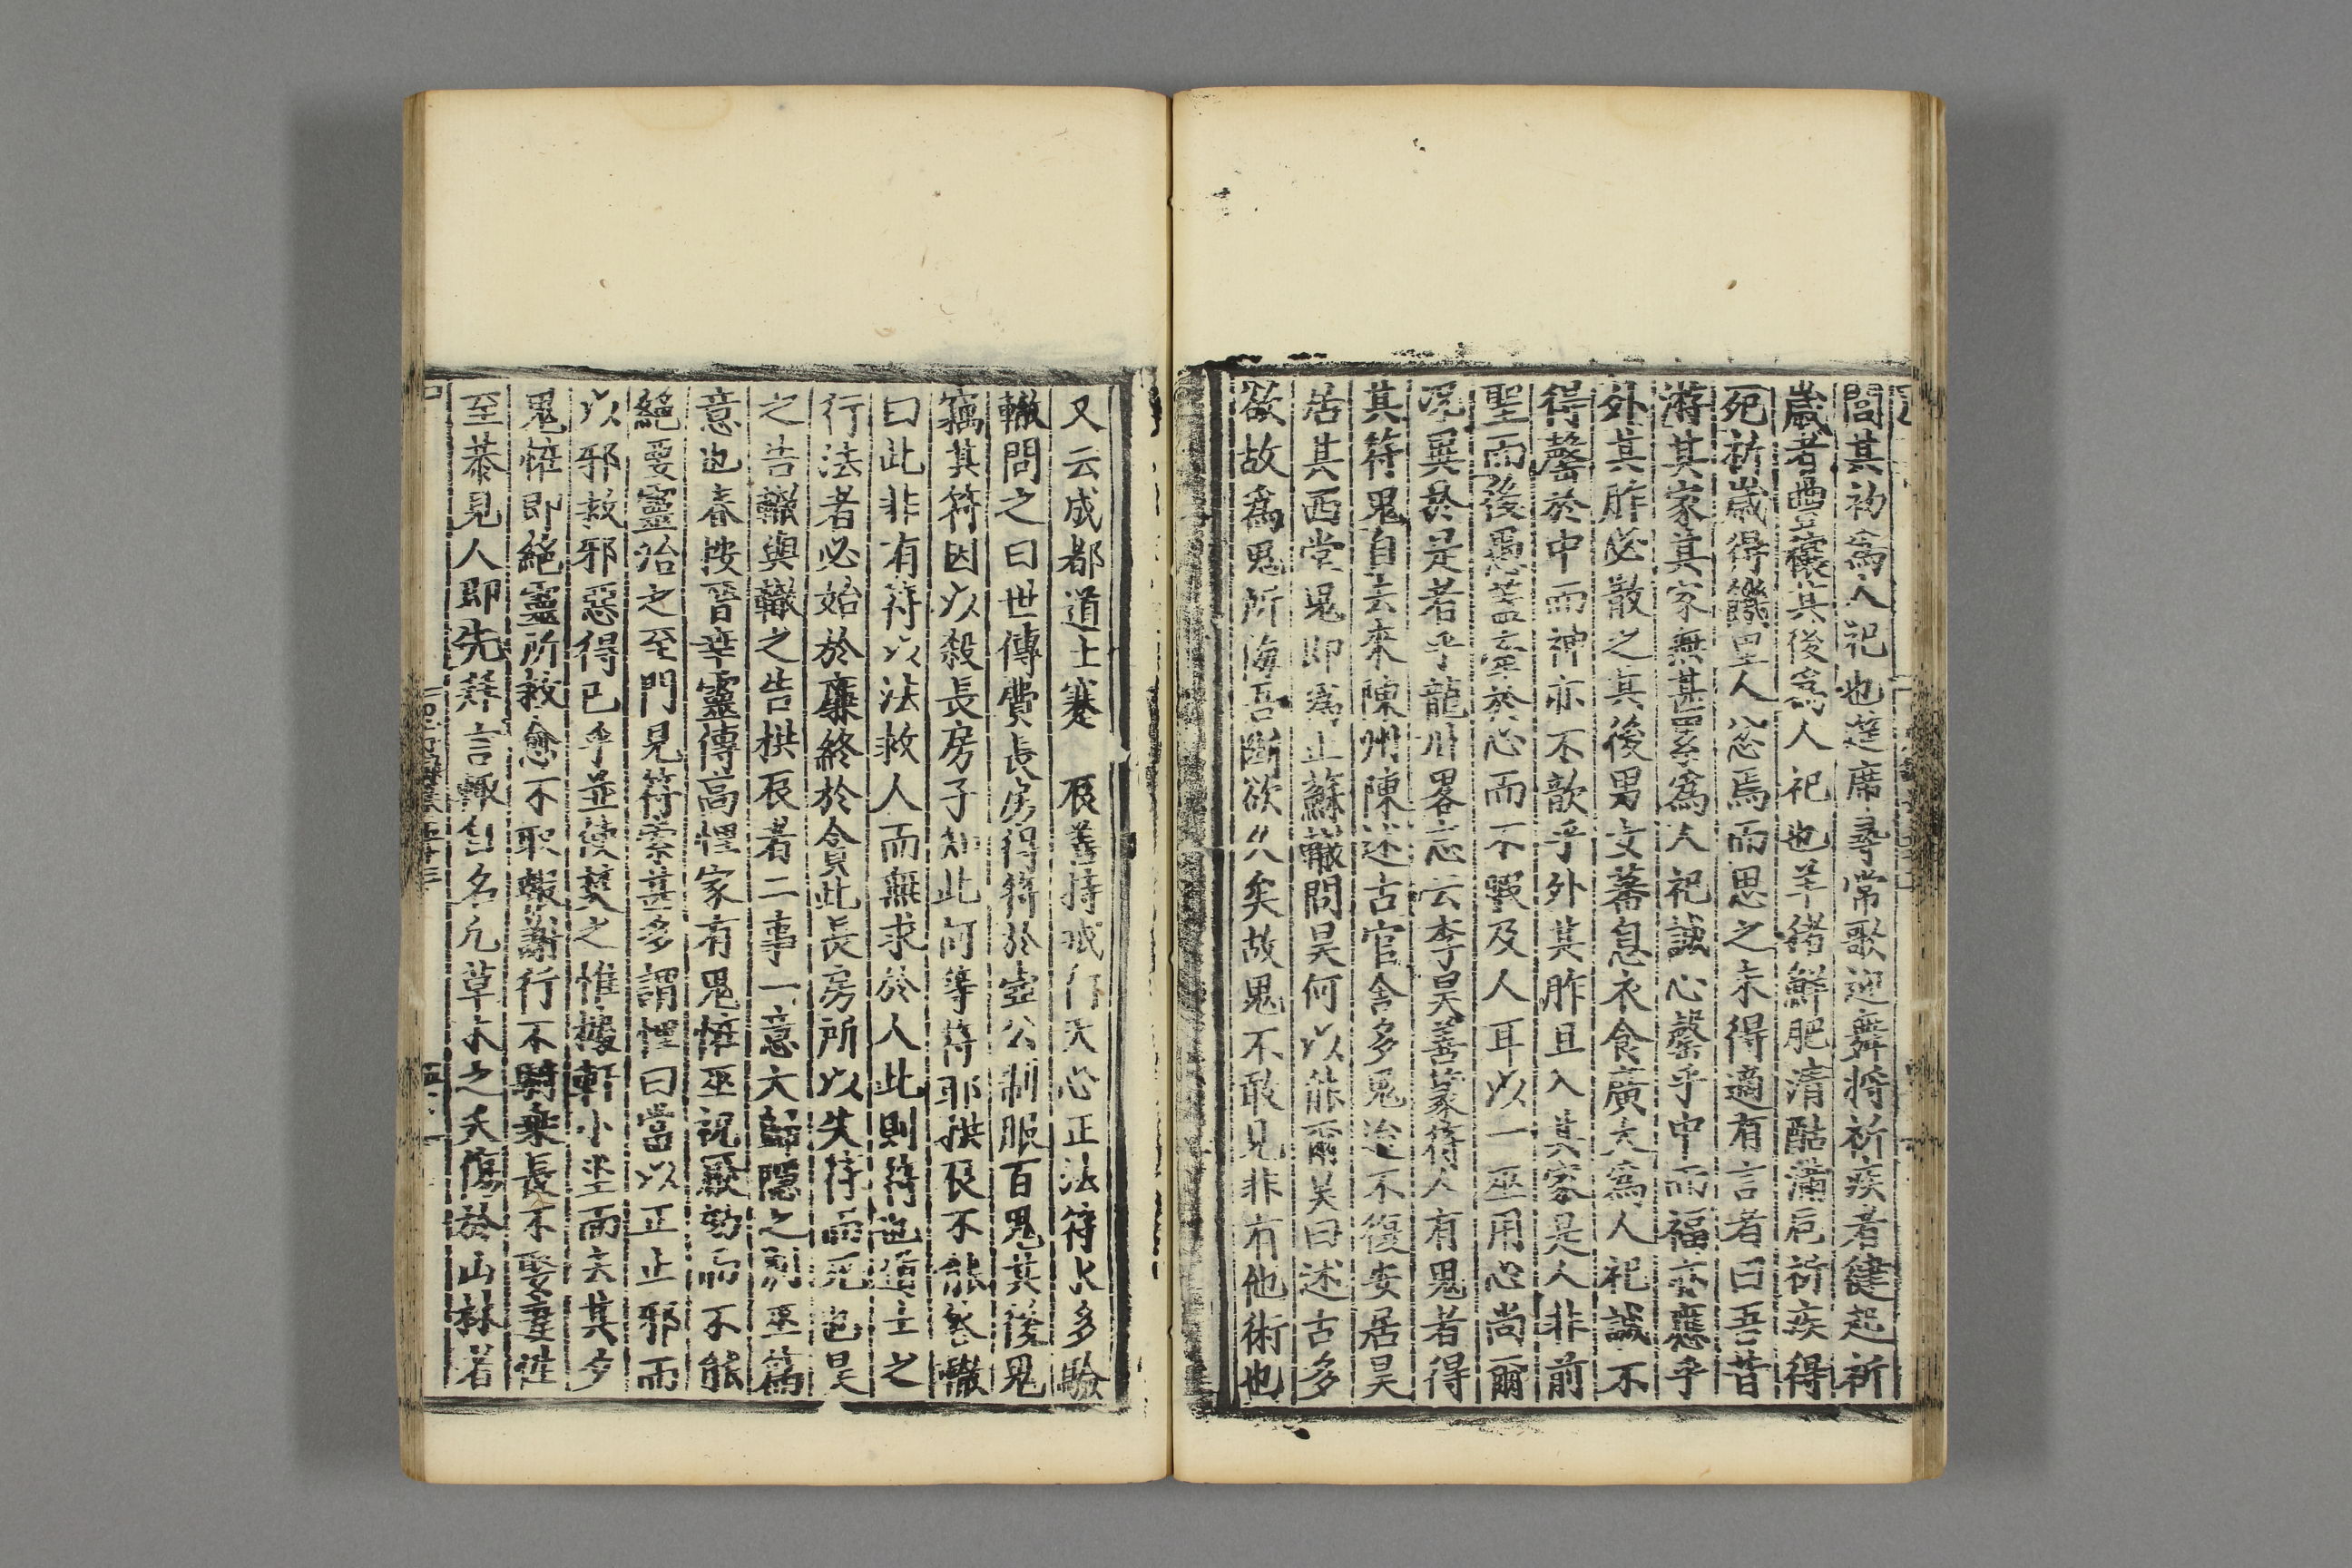 閭其初為人祀也筵席尋常歌迎舞將祈疾者健起祈
歲者豊穰其後為人祀也羊猪鮮肥清酤滿巵祈疾得
死祈歲得饑里人忿焉而思之未得適有言者曰吾昔
游其家其家無甚累為人祀誠心罄乎中而福亦應乎
外其胙必散之其後男女蕃息衣食廣大為人祀誠不
得罄於中而神亦不歆乎外其胙且入其家是人非前
聖而後愚盖牽於心而不暇及人耳以一巫用心尚爾
况異於是者乎龍川畧志云李昊善篆符人有鬼者得
其符鬼自去來陳州陳述古官舍多鬼迨不復安居昊
居其西堂鬼即為止蘇轍問昊何以能爾昊曰述古多
欲故為鬼所侮吾斷欲久矣故鬼不敢見非有他術也
又云成都道士蹇 辰善持戒行天心正法符水多驗
轍問之曰世傳費長房得符於壺公制服百鬼其後鬼
竊其符因以殺長房子知此何等符耶拱辰不能答轍
曰此非有符以法救人而無求於人此則符也道士之
行法者必始於廉終於貪此長房所以失符而死也昊
之告轍與轍之告拱辰者二事一意大歸隱之别巫為
意也春按晉幸靈傳高悝家有鬼恠巫祝厭劾而不能
絕要靈治之至門見符索甚多謂悝曰當以正止邪而
以邪救邪惡得已乎並使焚之惟據軒小坐而去其夕
鬼恠即絕靈所救愈不取報謝行不騎乗長不娶妻性
至恭見人即先拜言輙自名凡草木之夭傷於山林者